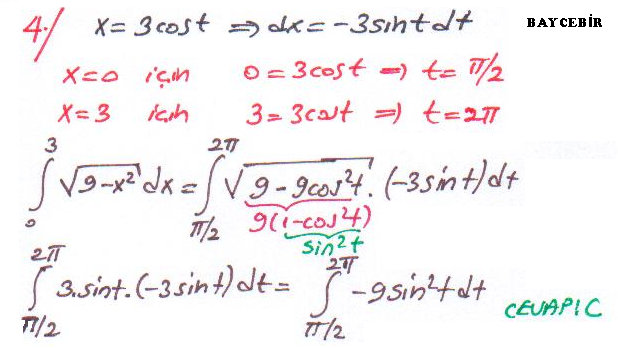 4-/ x = 3cost ⇒ dx = -3sint dt
BAYCEBİR
x=0 için 0 = 3cost ⇒ t = π/2
x=3 için 3 = 3cost ⇒ t = 2π
∫₀³ √(9-x²) dx = ∫_{π/2}^{2π} √(9-9cos²t) . (-3sint) dt
9(1-cos²t)
sin²t
∫_{π/2}^{2π} 3.sint.(-3sint) dt = ∫_{π/2}^{2π} -9sin²t dt
CEVAP IC